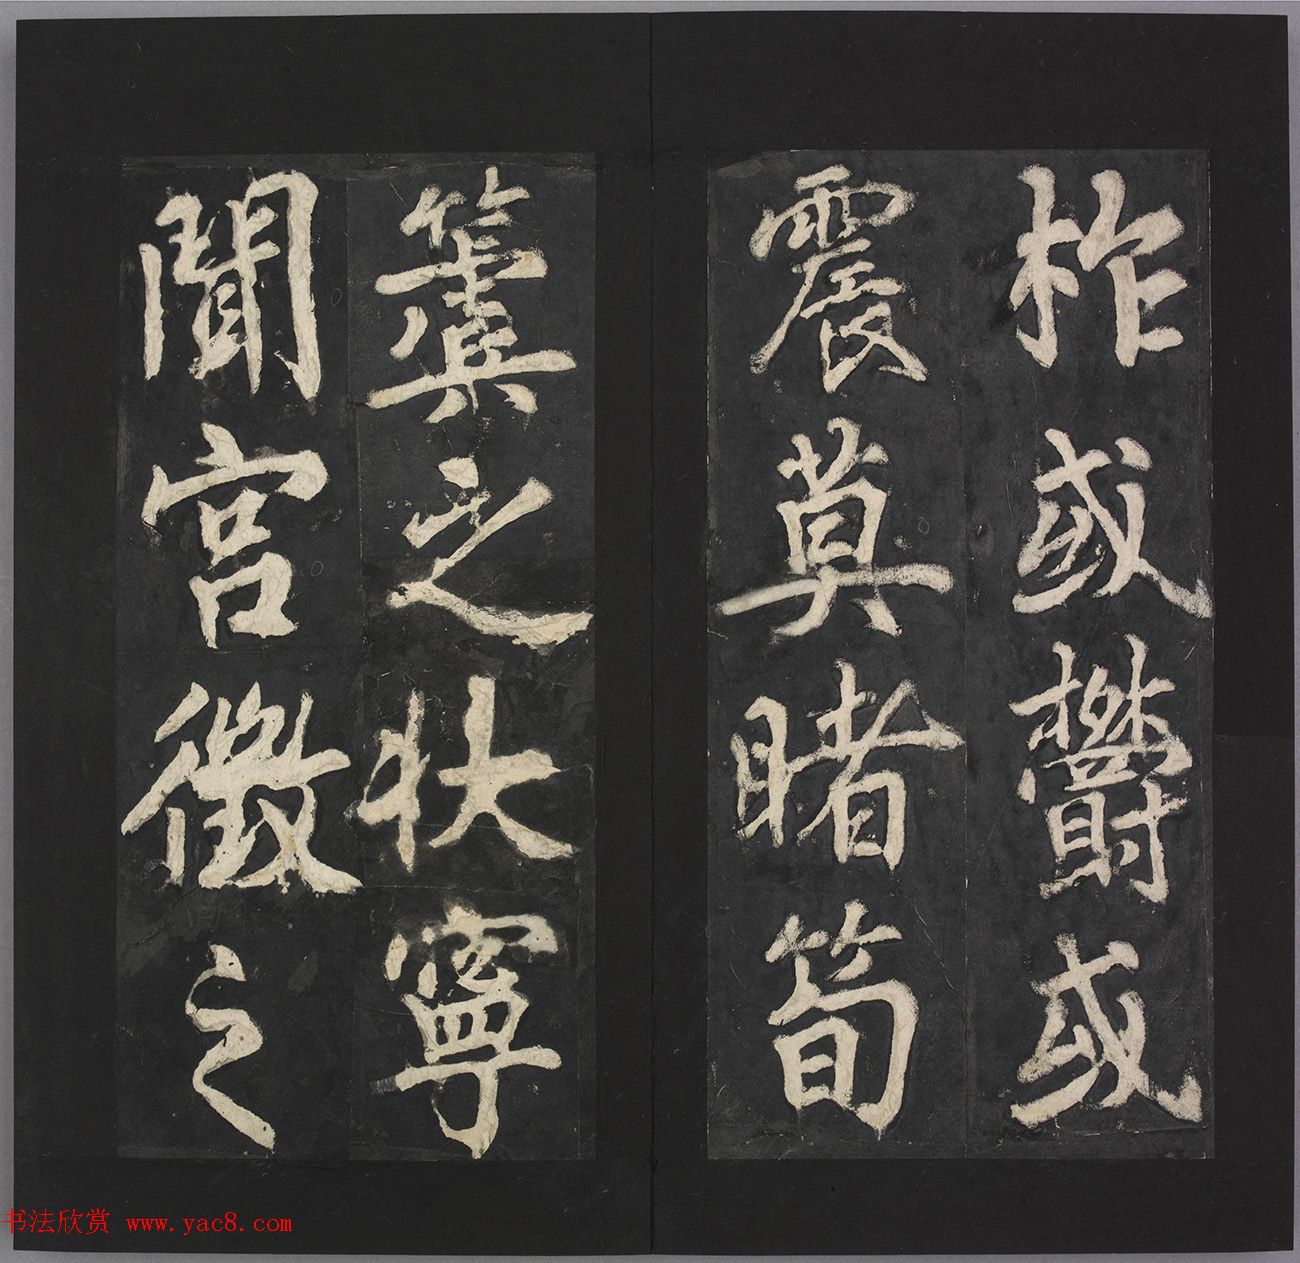 柞或欝或
震莫睹筍
簨之状寧
聞宫徵之
书法欣赏 www.yac8.com